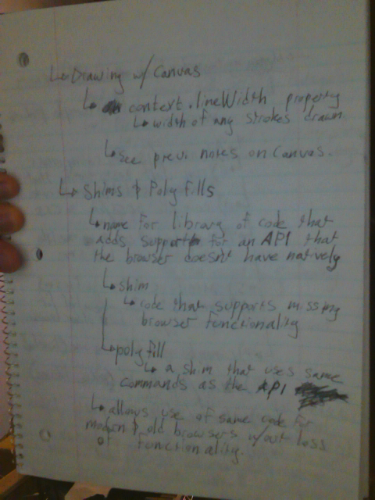 ↳ Drawing w/ Canvas
↳ context.lineWidth property
↳ width of any strokes drawn
↳ see prev. notes on Canvas.
↳ Shims & Poly fills
↳ name for library of code that
adds support for an API that
the browser doesn't have natively
↳ shim
↳ code that supports missing
browser functionality
↳ polyfill
↳ a shim that uses same
commands as the API
↳ allows use of same code for
modern & old browsers w/out loss
of functionality.